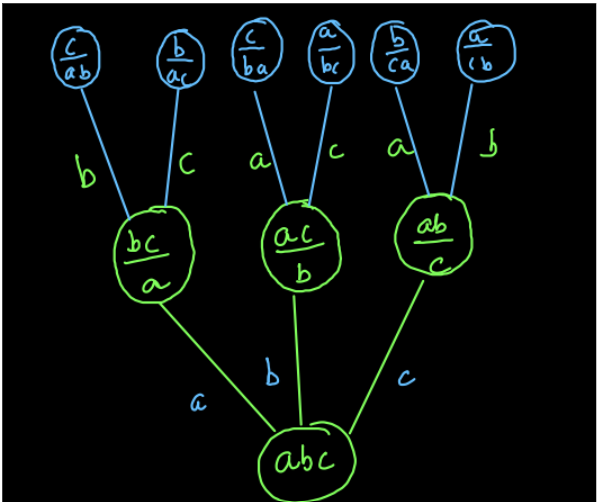 c/ab b/ac c/ba a/bc b/ca a/cb
b c a c a b
bc/a ac/b ab/c
a b c
abc